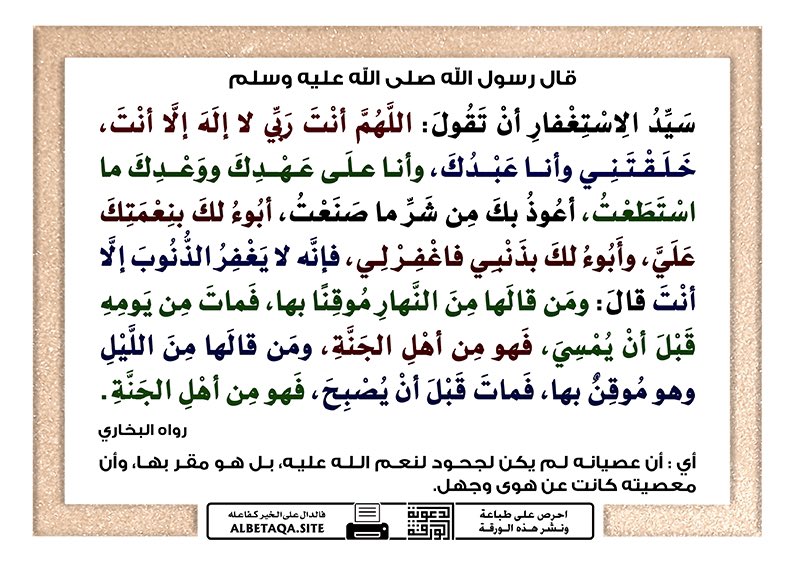 قال رسول الله صلى الله عليه وسلم
سَيِّدُ الِاسْتِغْفارِ أنْ تَقُولَ: اللَّهُمَّ أنْتَ رَبِّي لا إلَهَ إلَّا أنْتَ،
خَلَقْتَنِي وأنا عَبْدُكَ، وأنا علَى عَهْدِكَ ووَعْدِكَ ما
اسْتَطَعْتُ، أعُوذُ بكَ مِن شَرِّ ما صَنَعْتُ، أبُوءُ لكَ بنِعْمَتِكَ
عَلَيَّ، وأَبُوءُ لكَ بذَنْبِي فاغْفِرْ لِي، فإنَّه لا يَغْفِرُ الذُّنُوبَ إلَّا
أنْتَ قالَ: ومَن قالَها مِنَ النَّهارِ مُوقِنًا بها، فَماتَ مِن يَومِهِ
قَبْلَ أنْ يُمْسِيَ، فَهو مِن أهْلِ الجَنَّةِ، ومَن قالَها مِنَ اللَّيْلِ
وهو مُوقِنٌ بها، فَماتَ قَبْلَ أنْ يُصْبِحَ، فَهو مِن أهْلِ الجَنَّةِ.
رواه البخاري
أي : أن عصيانه لم يكن لجحود لنعم الـله عليه، بل هو مقر بها، وأن
معصيته كانت عن هوى وجهل.
احرص على طباعة
ونشر هذه الورقة
الدعوية
الورقة
فالدال على الخير كفاعله
ALBETAQA.SITE